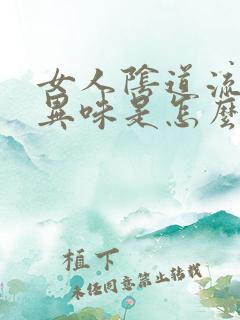 女人陰道流
異味是怎麼
植下
未经同意禁止转载